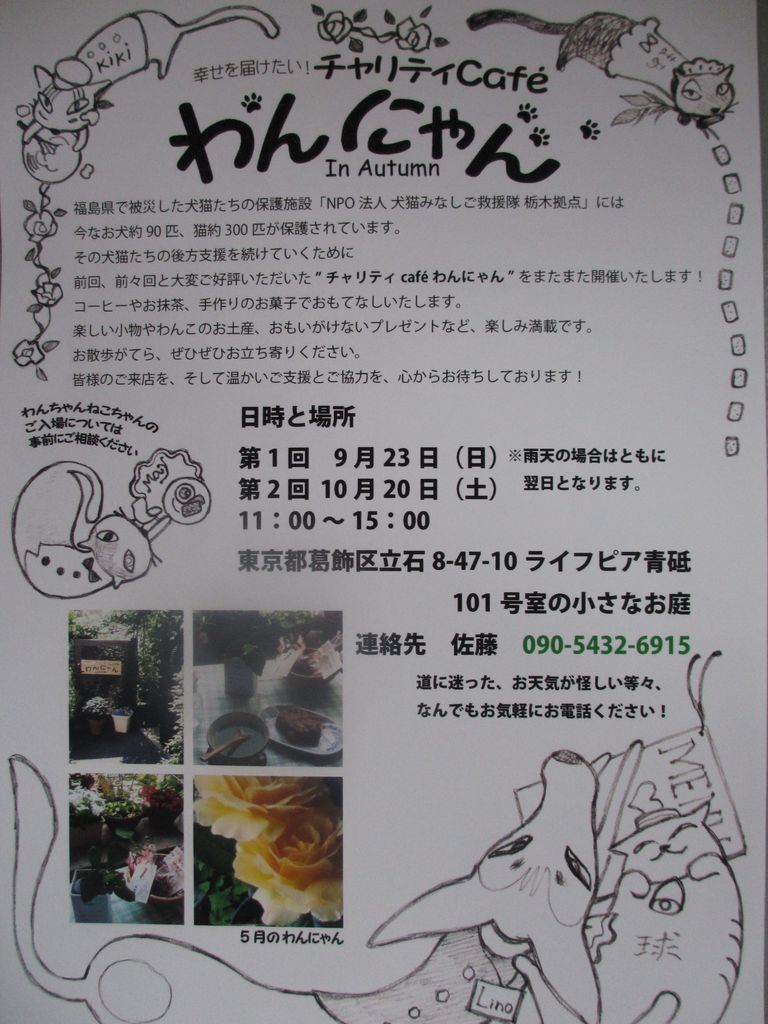 KiKi
幸せを届けたい！チャリティCafé
わんにゃん
In Autumn
福島県で被災した犬猫たちの保護施設「NPO 法人 犬猫みなしご救援隊 栃木拠点」には
今なお犬約 90 匹、猫約 300 匹が保護されています。
その犬猫たちの後方支援を続けていくために
前回、前々回と大変ご好評いただいた ” チャリティ café わんにゃん ” をまたまた開催いたします！
コーヒーやお抹茶、手作りのお菓子でおもてなしいたします。
楽しい小物やわんこのお土産、おもいがけないプレゼントなど、楽しみ満載です。
お散歩がてら、ぜひぜひお立ち寄りください。
皆様のご来店を、そして温かいご支援とご協力を、心からお待ちしております！
わんちゃんねこちゃんの
ご入場については
事前にご相談ください
日時と場所
第 1 回　9 月 23 日（日）※雨天の場合はともに
第 2 回 10 月 20 日（土）　翌日となります。
11：00 ～ 15：00
東京都葛飾区立石 8-47-10 ライフピア青砥
101 号室の小さなお庭
連絡先　佐藤　090-5432-6915
道に迷った、お天気が怪しい等々、
なんでもお気軽にお電話ください！
わんにゃん
5 月のわんにゃん
MENU
球
Lino